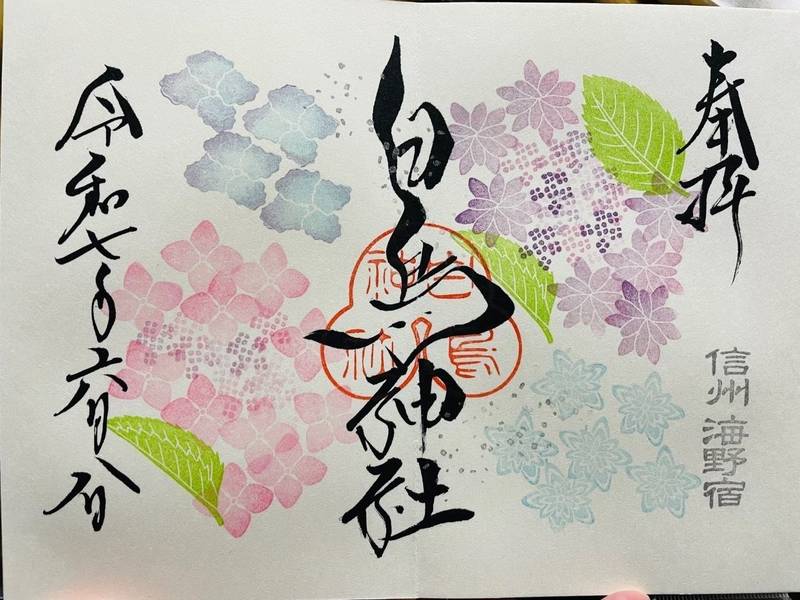 奉拝
信州 海野宿
白鳥神社
白鳥神社
令和七年六月八日